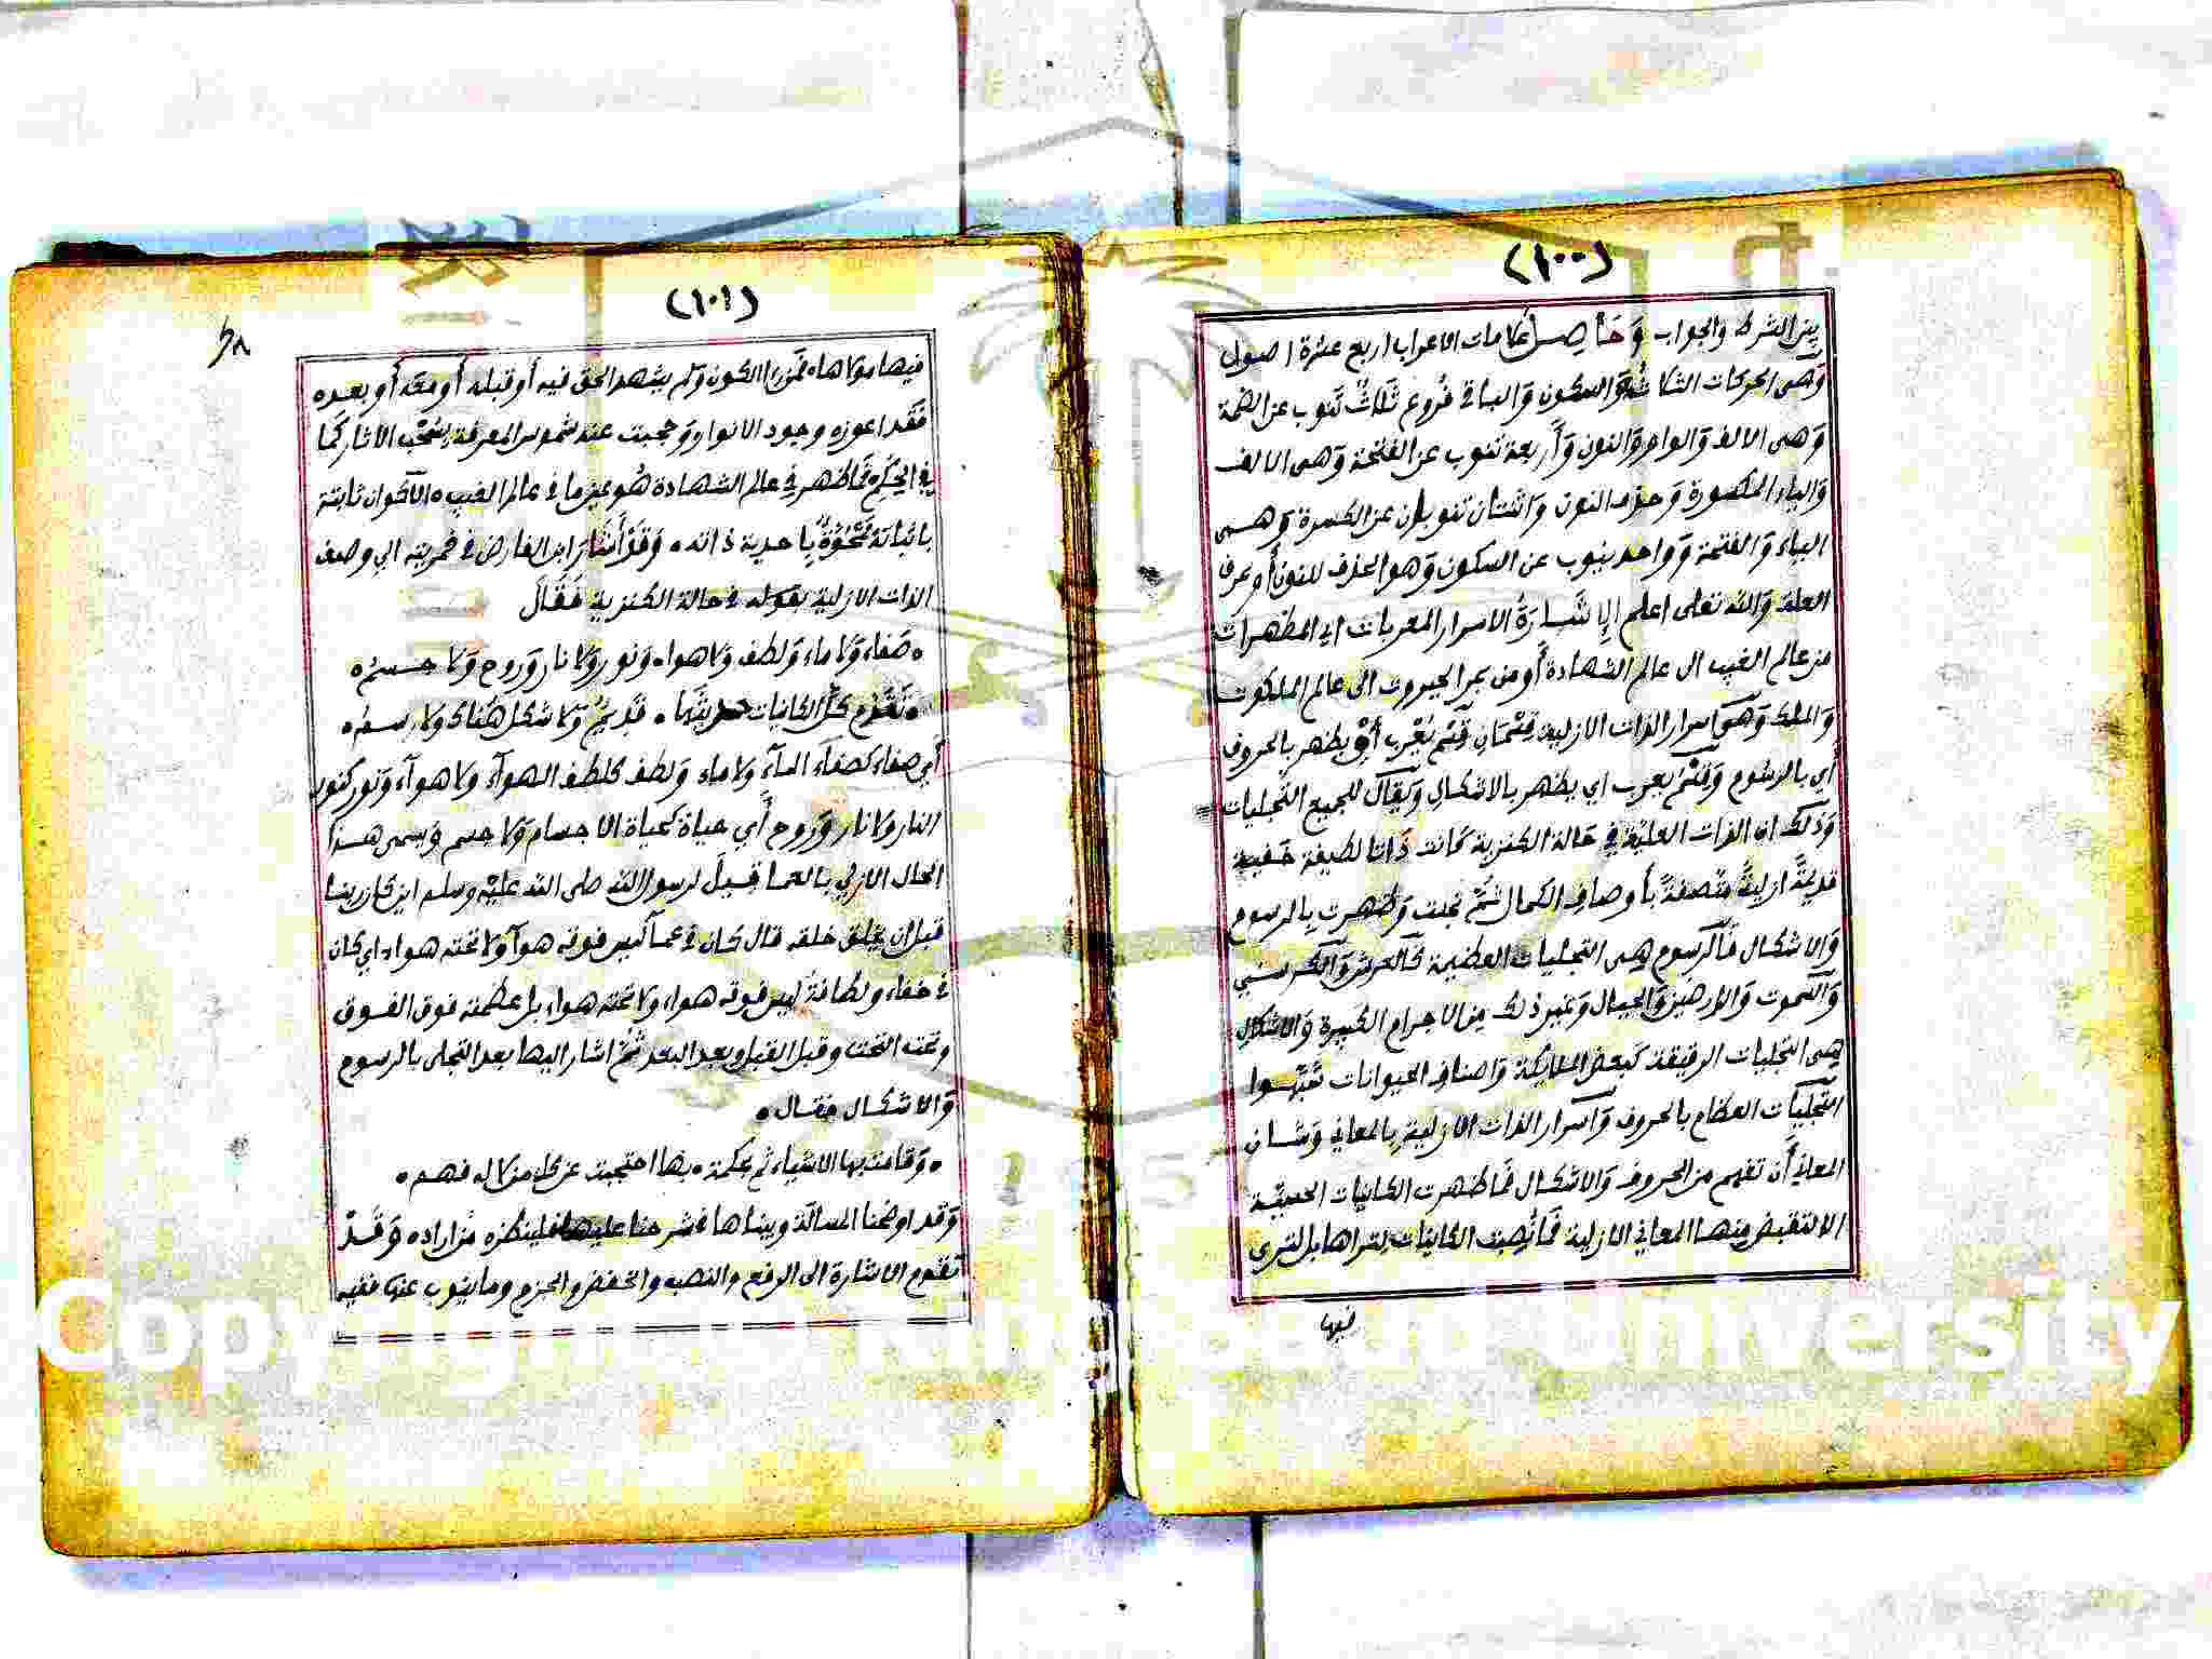 (١٠٠)
بين الشرط والجواب وَحَاصِل علامات الاعراب اربع عشرة اصول
وَهي الحركات الثلاثة وَالسكون وَالباقي فروع ثلاثٌ تَنوب عن الضمة
وَهي الالف وَالواو وَالنون وَأربعة تنوب عن الفتحة وَهي الالف
وَالياء المكسورة وَحذف النون وَاثنتان تنوبان عن الكسرة وَهـي
الياء وَالفتحة وَواحد ينوب عن السكون وَهو الحذف للنون أو حرف
العلة وَالله تعلى اعلم الإشَارَةُ الاسرار المعربات اي المظهرات
من عالم الغيب الى عالم الشهادة أو من بحر الجبروت الى عالم الملكوت
وَالملك وَهي اسرار الذات الازلية قِسْمَانِ قِسْم يُعْرب أي يظهر بالحروف
أي بالرسُوم وَقِسْم يعرب اي يظهر بالاشكالِ وَيُقال للجميع التجليات
وَذلك ان الذات العلية في حَالة الكنزية كَانت ذَاتا لطيفة خفية
قديمةً ازليةً متصفةً بأوصافِ الكمال ثُمَّ تجلت وَظهرت بالرسوم
وَالاشكال فَالرسوم هي التجليات العظيمة كَالعرش وَالكرسي
وَالسموت وَالارضين وَالجبال وَغير ذلك مِن الاجرام الكبيرة وَالاشكال
هي التجليات الرقيقة كَبعض الملايكة وَاصناف الحيوانات شبهـوا
التجليَات العظام بالحروف وَاسرار الذات الازليةِ بالمعاني وَشـان
المعاني أَن تفهم من الحروف وَالاشكـال فَما ظهرت الكـائنات الحسية
الا لتقبض مِنهـا المعاني الازلية فَما نُصِبت الكائنات لتراها بل لترى
فيها
(١٠١)
٦٨
فيها مولاها، فَمَن رأ الكون وَلم يشهد الحق فيه أو قبله أو معَه أو بعـده
فَقَد اعوزه وجود الانوار وَحجبت عنه شموس المعرفة بسُحُب الاثار كَمَا
في الحِكَم فَما ظهر في عالم الشهادة هُو عين ما في عالم الغيب، الآكوان ثابتة
باثباته مَمْحُوَّةٌ بِاحدية ذاته، وَقَدْ أَشَارَ ابن الفارض في خمريته الي وصف
الذات الازلية بقوله في حالة الكنزية فَقَالَ
، صَفاء وَلا ماء وَلطف وَلا هواء وَنور وَلا نار وَروح وَلا جـسم،
، تَقَدَّم كلّ الكاينات حديثُها ، قَدِيمٌ وَلا شكل هُناك ولا رسـم،
أَي صفاء كصفآء المآء ولا ماء وَلطف كلطف الهوآء ولا هوآء وَنور كنور
النار ولا نار وَروح أَي حياة كحياة الاجسام وَلا جسم وَيسمى هـذا
الحال الازلي بالعما قِيـلَ لرسول الله صلى الله عليه وسلم اين كان ربنـا
قبل ان يخلق خلقه قال كـان في عمآ ليس فوقه هوآ ولا تحته هواء، اي كان
في خفاء ولطافةٍ ليس فوقه هواء ولا تحته هواء بل عظمته فوق الفـوق
وتحت التحت وقبل القبل وبعد البعد ثُمَّ اشار اليها بعد التجلي بالرسوم
وَالاشكـال فقـال،
، وَقامت بها الاشياء ثم لحكمة ، بها احتجبت عن كل من لا له فهـم،
وَقد اوضحنا المسالَة وبيناها في شرحنا عليها فلينظره مَن اراده وَقَـدْ
تقدَّم الاشارة الى الرفع والنصب والخفض والجزم وما ينوب عنها ففيه